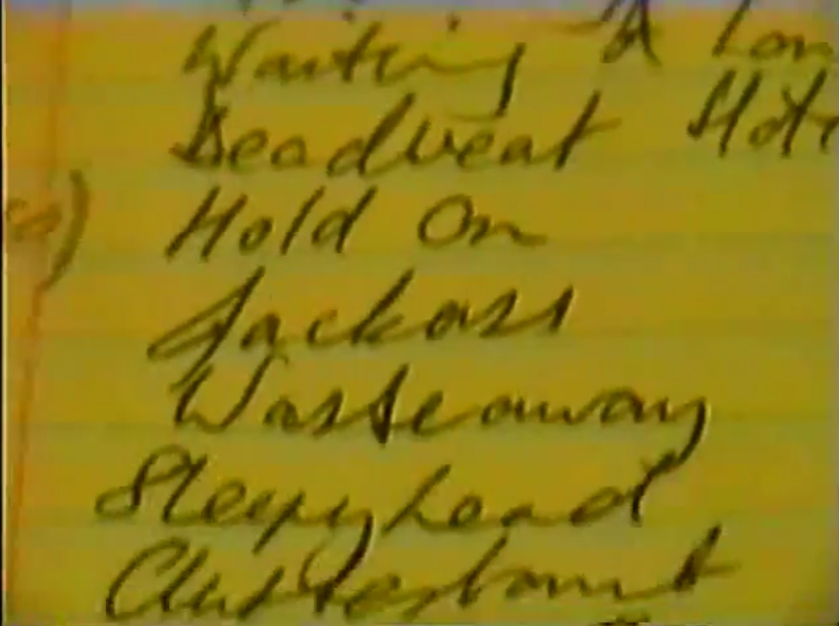 Waiting A Lon
Deadbeat Hote
Hold On
Jackass
Wasteaway
Sleepyhead